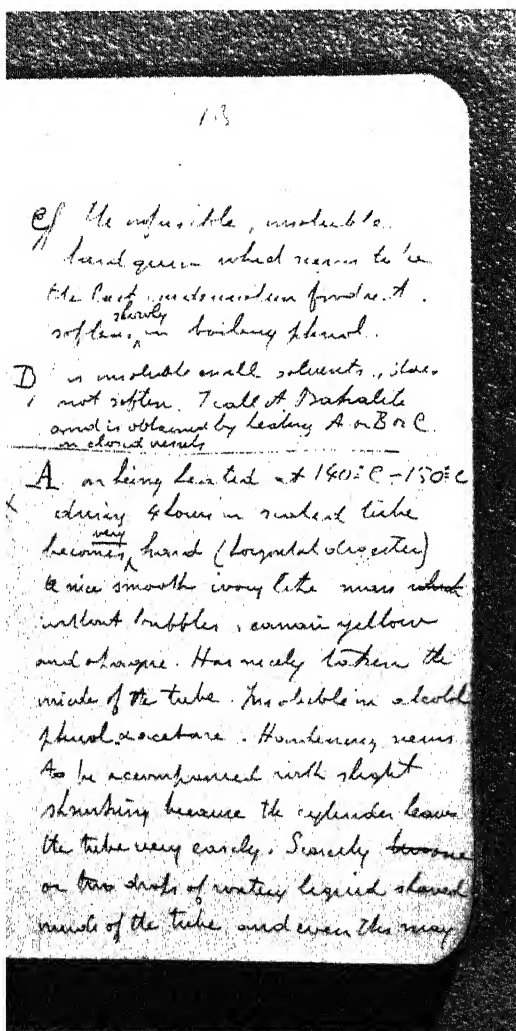 13
C/ the infusible, insoluble
hard gum which seems to be
the last intermediate product.
softens slowly in boiling phenol.
D is insoluble in all solvents, does
not soften. I call it Bakalite
and is obtained by heating A or B or C
in closed vessels
A on being heated at 140°C - 150°C
during 4 hours in sealed tube
becomes very hard (horizontal digester)
a nice smooth ivory like mass which
without bubbles, canari yellow
and opaque. Has nicely taken the
inside of the tube. Insoluble in alcohol
phenol acetone. Hardening seems
to be accompanied with slight
shrinking because the cylinder leaves
the tube very easily. Scarcely one
or two drops of watery liquid showed
inside of the tube and even this may